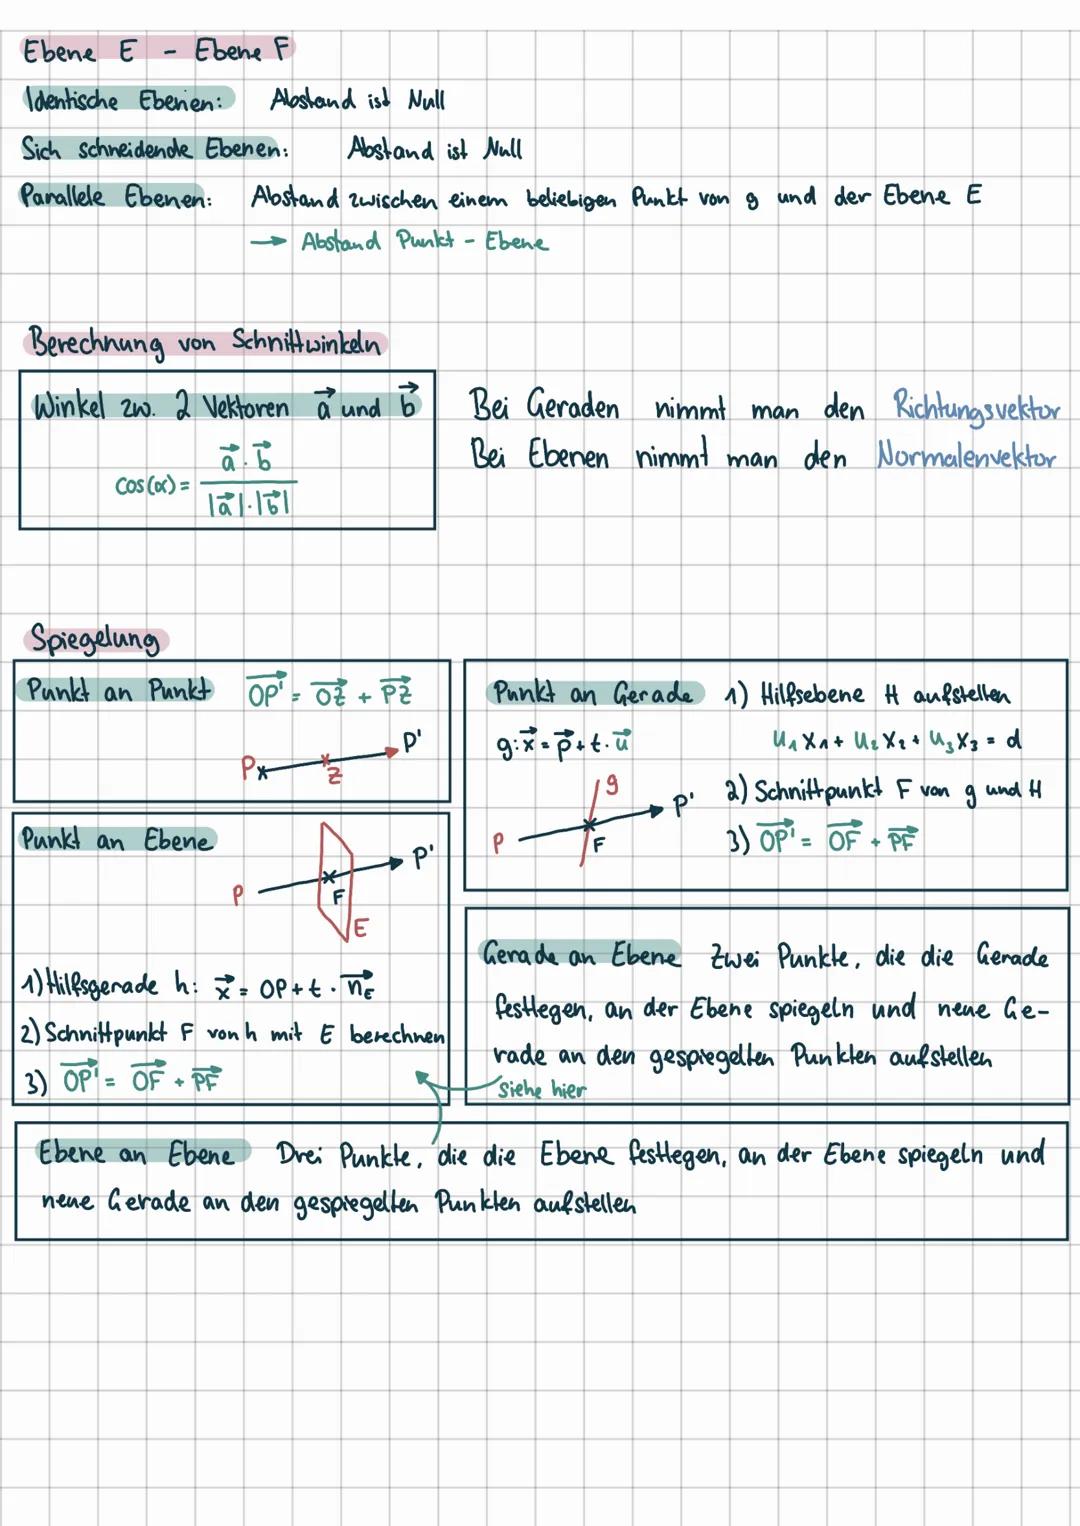 Ebene E - Ebene F
Identische Ebenen: Abstand ist Null
Sich schneidende Ebenen: Abstand ist Null
Parallele Ebenen: Abstand zwischen einem beliebigen Punkt von g und der Ebene E
→ Abstand Punkt - Ebene
Berechnung von Schnittwinkeln
Winkel zw. 2 Vektoren a⃗ und b⃗
cos(α) = (a⃗ · b⃗) / (|a⃗| · |b⃗|)
Bei Geraden nimmt man den Richtungsvektor
Bei Ebenen nimmt man den Normalenvektor
Spiegelung
Punkt an Punkt OP'⃗ = OZ⃗ + PZ⃗
P Z P'
Punkt an Gerade 1) Hilfsebene H aufstellen
g: x⃗ = p⃗ + t · u⃗ u₁x₁ + u₂x₂ + u₃x₃ = d
2) Schnittpunkt F von g und H
3) OP'⃗ = OF⃗ + PF⃗
P g F P'
Punkt an Ebene
P F E P'
1) Hilfsgerade h: x⃗ = OP + t · n_E⃗
2) Schnittpunkt F von h mit E berechnen
3) OP'⃗ = OF⃗ + PF⃗
Gerade an Ebene Zwei Punkte, die die Gerade
festlegen, an der Ebene spiegeln und neue Ge-
rade an den gespiegelten Punkten aufstellen
siehe hier
Ebene an Ebene Drei Punkte, die die Ebene festlegen, an der Ebene spiegeln und
neue Gerade an den gespiegelten Punkten aufstellen